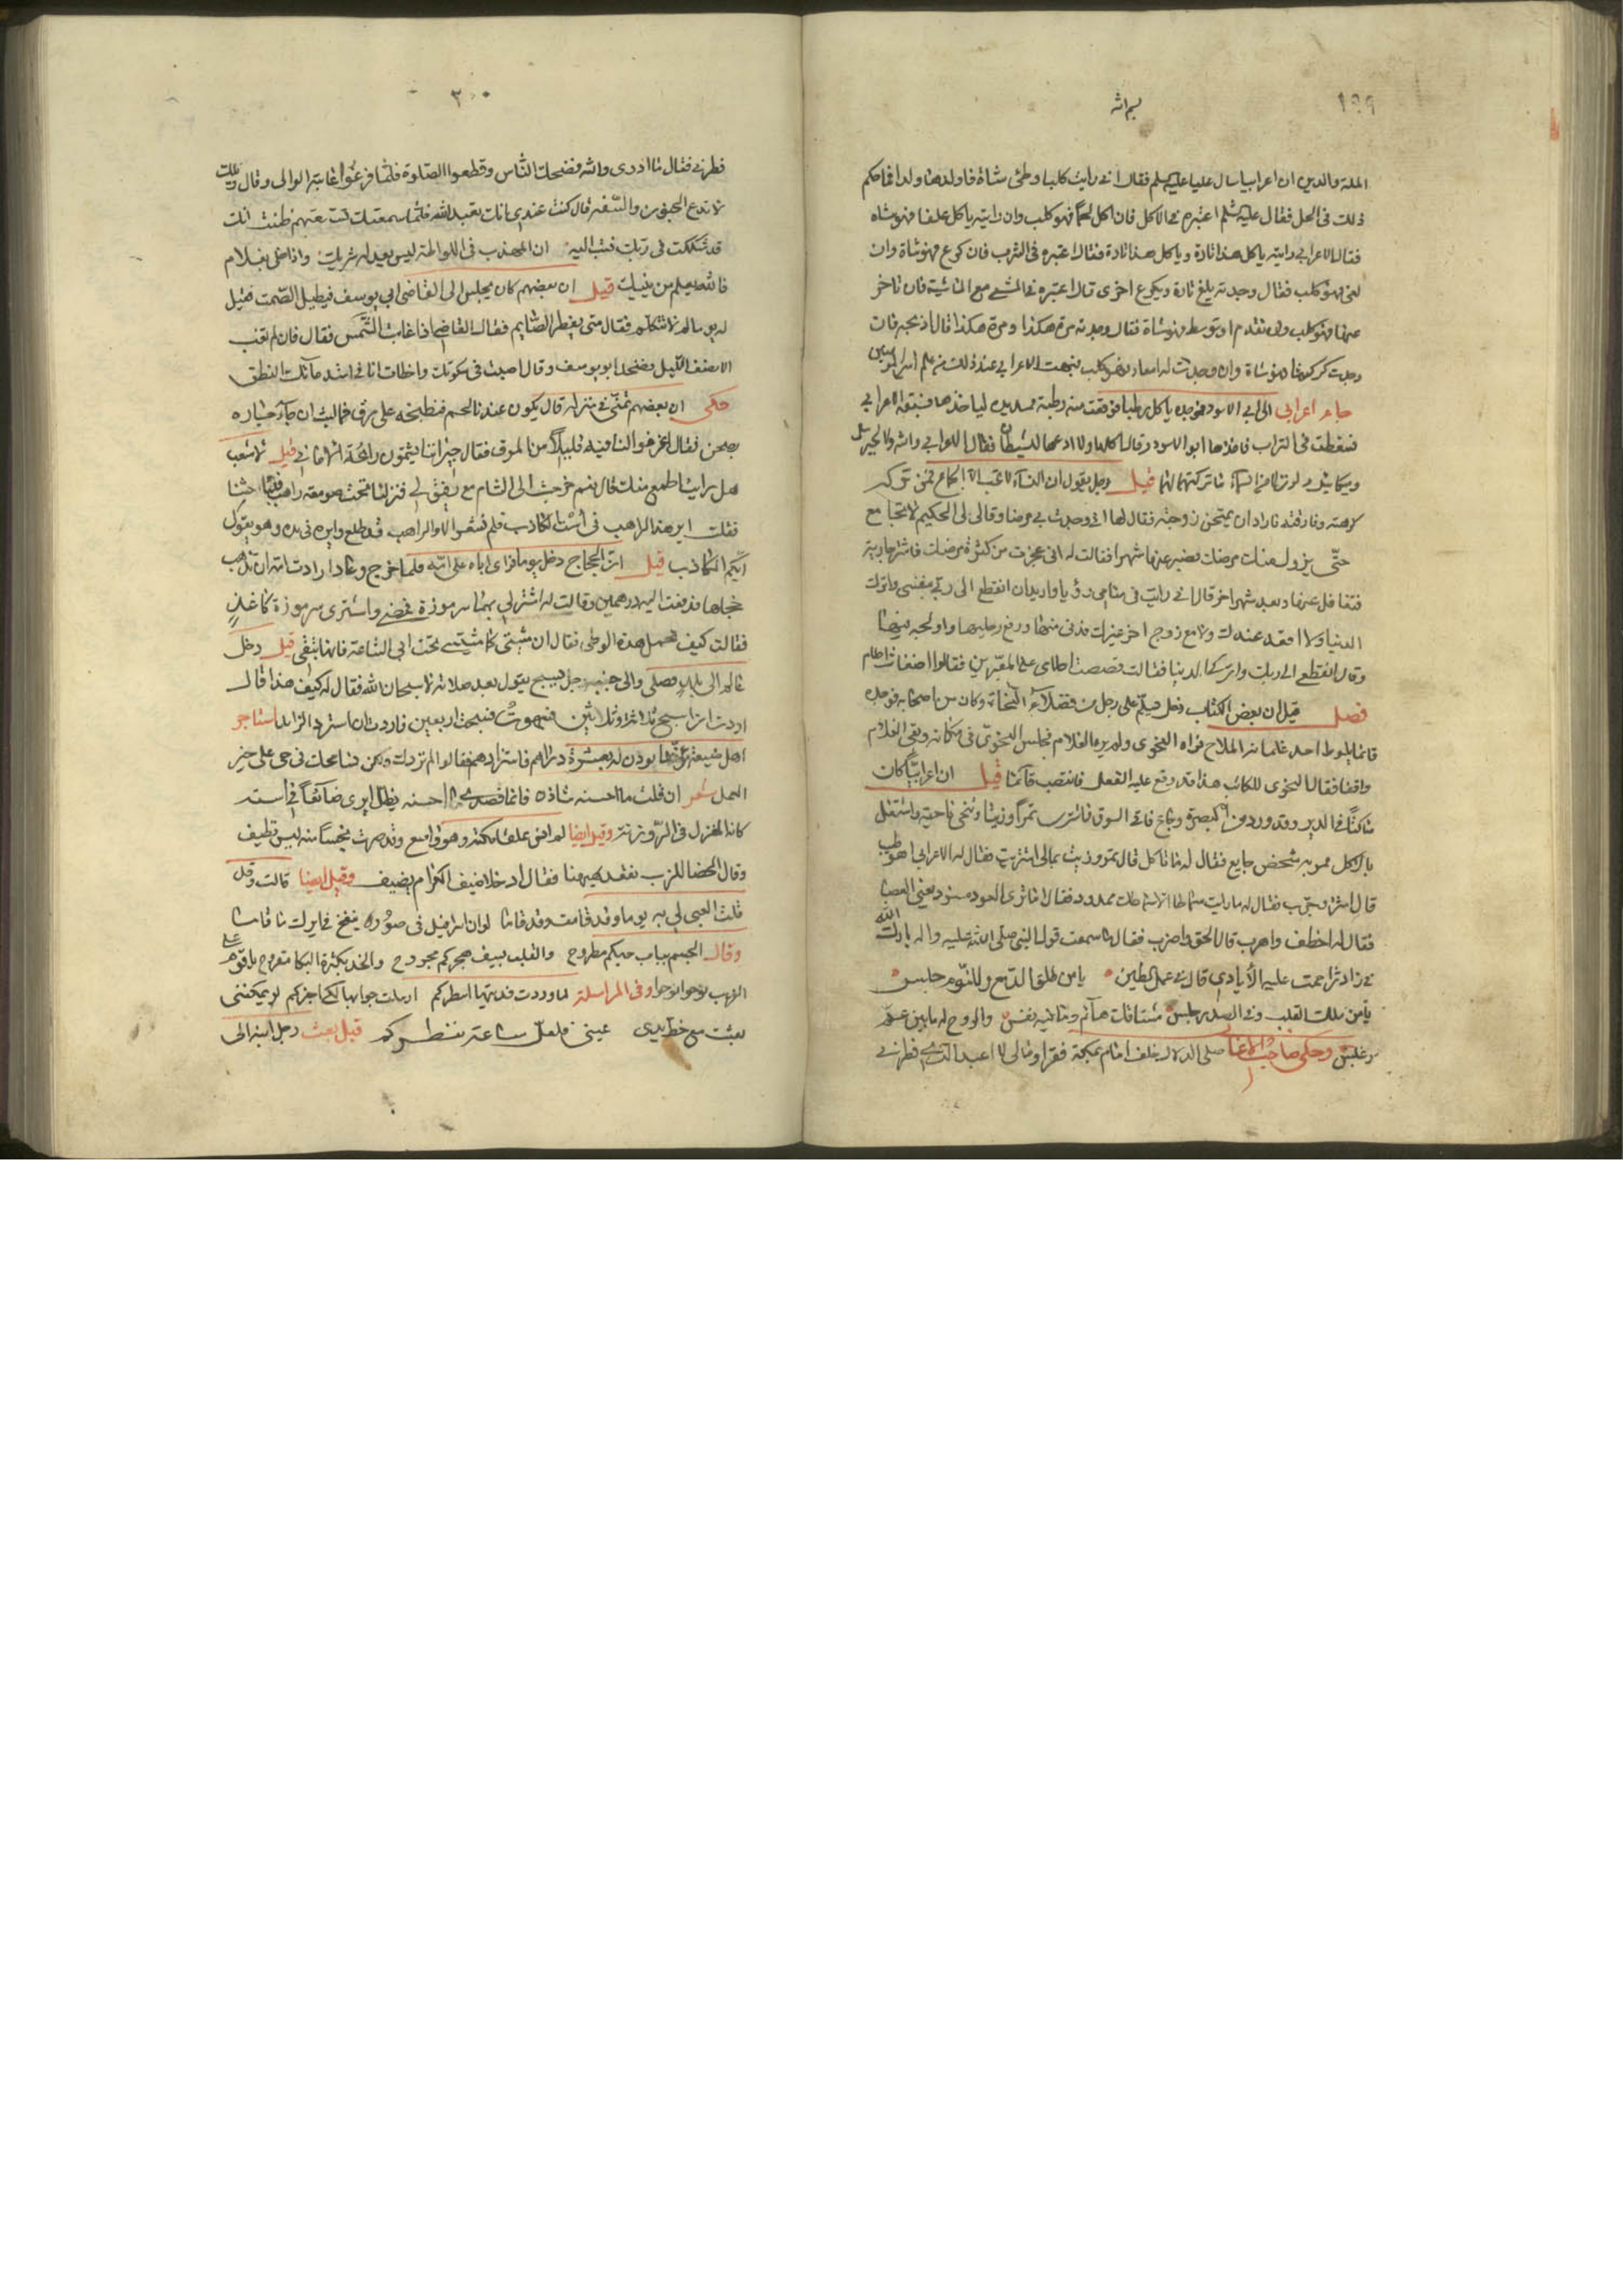 ١٩٩
بسم الله
الملة والدين ان اعرابيا سال عليا عليه السلم فقال اني رايت كلبا وطئ شاة فاولدها ولدا فما حكم
ذلك في الحل فقال عليه السلم اعتبره في الاكل فان اكل لحما فهو كلب وان رايته ياكل علفا فهو شاة
فقال الاعرابي رايته ياكل هذا تارة وياكل هذا تارة فقال اعتبره في الشرب فان كرع فهو شاة وان
لغ فهو كلب فقال وجدته يلغ تارة ويكرع اخرى قال اعتبره في المشي مع الماشية فان تاخر
عنها فهو كلب وان تقدم او توسط فهو شاة فقال وجدته مرة هكذا ومرة هكذا قال اذبحه فان
وجدت كرشا فهو شاة وان وجدت له امعاء فهو كلب فبهت الاعرابي عند ذلك من علم امير المؤمنين
جاء اعرابي الى ابي الاسود فوجده ياكل رطبا فوقعت منه رطبة فمد يده لياخذها فسبقه الاعرابي
فسقطت في التراب فاخذها ابو الاسود وقال اكلها ولا ادعها للشيطان فقال الاعرابي والله ولا لجبرئيل
وميكائيل لو نزلا من السماء ما تركتها لهما قيل رجل يقول ان النساء لا تحب الا الجماع فمن تركه
كرهته وفارقته فاراد ان يمتحن زوجته فقال لها اني وجدت بي مرضا وقال لي الحكيم لا تجامع
حتى يزول عنك مرضك فصبر عنها شهرا فقالت له اني عجزت من كثرة مرضك فاشتر جارية
فتغافل عنها وبعد شهر اخر قال اني رايت في منامي رؤيا واريد ان انقطع الى ربي بنفسي واترك
الدنيا ولا اقعد عندك
وقال انقطع الى ربك واترك الدنيا فقالت قصصت احلامي على المعبرين فقالوا اضغاث احلام
فصل قيل ان بعض الكتاب دخل يسلم على رجل من فضلاء النحاة وكان من اصحابه فوجده
قائما يلوط احد غلمانه الملاح فراه النحوي ولم يره الغلام فجلس النحوي في مكانه وبقي الغلام
واقفا فقال النحوي للكاتب هذا قد وقع عليه الفعل فانتصب قائما قيل ان اعرابيا كان
ساكنا في البر وقد ورد من البصرة وجاع فاتى السوق فاشترى تمرا وزيتا وتنحى ناحية واشتغل
بالاكل فمر به شخص جايع فقال له ما تاكل قال تمر وزيت بمالي اشتريت فقال له الاعرابي اهو طيب
قال اشتر وجرب فقال له ما رايت سماطا الا سماطك ممدود فقال اما ترى العود مسنود يعني العصا
فقال له اخطف واهرب قال الحق واضرب فقال ما سمعت قول النبي صلى الله عليه واله بارك الله
في زاد تزاحمت عليه الأيادي قال في عمل الطين يا من طلق الدمع وللنوم حبس
يا من ملك القلب وفي الصدر جلس مشتاقك هائم
وحكى صاحب الاغاني صلى الدلال خلف امام بمكة فقرا ومالي لا اعبد الذي فطرني

٢٠٠
فطرني فقال ما ادري والله فضحك الناس وقطعوا الصلوة فلما فرغوا عاتبه الوالي وقال ويلك
لا تدع المجون والسفه قال كنت عندي انك تعبد الله فلما سمعتك تستفهم ظننت انك
قد شككت في ربك فتب اليه ان المهذب في اللواطة ليس يعدله شريك واذا خلى بغلام
فالله يعلم من ينيك قيل ان بعضهم كان يجلس الى القاضي ابي يوسف فيطيل الصمت فقيل
له يوما لم لا تتكلم فقال متى يفطر الصايم فقال القاضي اذا غابت الشمس فقال فان لم تغب
الا نصف الليل فضحك ابو يوسف وقال اصبت في سكوتك واخطات انا في استدعائك النطق
حكى ان بعضهم تمنى في منزله قال يكون عندنا لحم فنطبخه على مرق فما لبث ان جاء جاره
بصحن فقال اغرفوا لنا فيه قليلا من المرق فقال جيراننا يشمون رائحة الاماني قيل لاشعب
هل رايت اطمع منك قال نعم خرجت الى الشام مع رفيق لي فنزلنا تحت صومعة راهب
فقلت اير هذا الراهب في است الكاذب فلم نشعر الا والراهب قد طلع وايره في يده وهو يقول
ايكم الكاذب قيل ان الحجاج دخل يوما فراى اباه على امه فلما خرج وعاد ارادت امه ان تذهب
خجلها فدفعت اليه درهمين وقالت له اشتر لي بهما سرموزة فمضى واشترى سرموزة كاغذ
فقالت كيف تحمل هذه الوطي فقال ان مشيتي كما مشيتي تحت ابي الساعة فانها تبقى قيل دخل
عالم الى بلد فصلى والى جنبه رجل يسبح يقول بعد صلاته لا سبحان الله فقال له كيف هذا قال
اردت ان اسبح ثلاثة وثلاثين فسهوت فسبحت اربعين فاردت ان استرد الزايد استاجر
اهل ضيعة مؤذنا يؤذن لهم بعشرة دراهم فاستزادهم فقالوا لم نزدك ولكن نسامحك في حي على خير
العمل شعر ان قلت ما احسنه شاذه فانما قصدي احسنه يظل ايري ضائعا في استه
كانه المغزل في الروزنة وقيل ايضا
وقال ايضا فقال ادخلا ضيف الكرام يضيف وقيل ايضا قالت وقد
قلت العبي لي به يوما وقد قامت وقد قاما لو ان اسرافيل في صوره ينفخ في ايرك ما قاما
وقال الجسم بباب حبكم مطروح والقلب بسيف هجركم مجروح والخد بكثرة البكا مقروح
وفي المراسلة لما وردت قبلتها اسطركم ارسلت جوابها لكي اخبركم لو يمكنني
بعثت مع خط يدي عيني فلعل ساعة تنظركم قيل بعث رجل ابنه الى